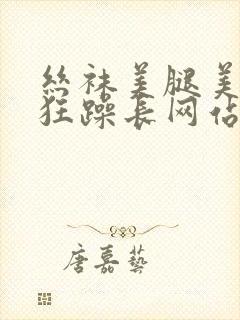 丝袜美腿美
狂躁长网佔
唐嘉艺